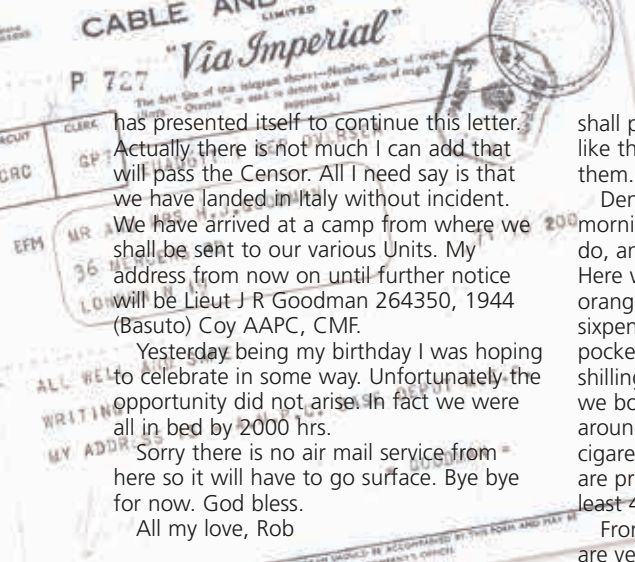 CABLE AND
LIMITED
"Via Imperial"
P 727
CIRCUIT
CLERK
CRC
GPT
EFM
MR
GOODMAN
36
LONDON
200
ALL WELL AND SAFE
WRITING
MY ADDRESS
BASE DEPOT
= GOODMAN =
has presented itself to continue this letter.
Actually there is not much I can add that
will pass the Censor. All I need say is that
we have landed in Italy without incident.
We have arrived at a camp from where we
shall be sent to our various Units. My
address from now on until further notice
will be Lieut J R Goodman 264350, 1944
(Basuto) Coy AAPC, CMF.
Yesterday being my birthday I was hoping
to celebrate in some way. Unfortunately the
opportunity did not arise. In fact we were
all in bed by 2000 hrs.
Sorry there is no air mail service from
here so it will have to go surface. Bye bye
for now. God bless.
All my love, Rob
shall p
like th
them.
Den
mornin
do, an
Here w
orang
sixpen
pocke
shilling
we bo
aroun
cigare
are pr
least 4
Fror
are ve